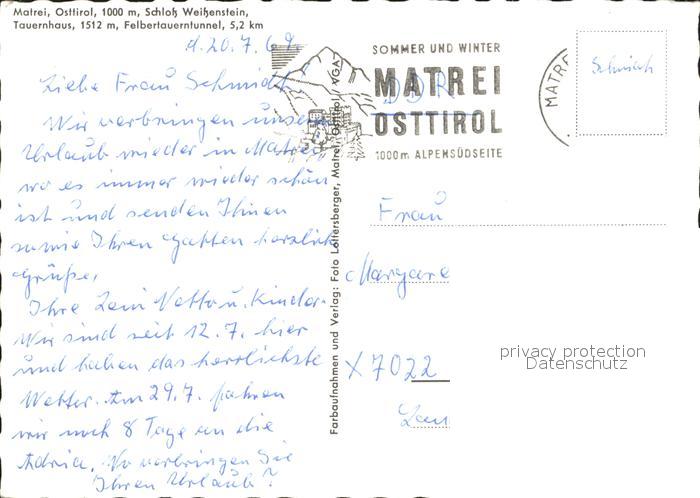 Matrei, Osttirol, 1000 m, Schloß Weißenstein,
Tauernhaus, 1512 m, Felbertauerntunnel, 5,2 km
d. 20.7.69.
Liebe Frau Schmidt!
Wir verbringen unseren
Urlaub wieder in Matrei,
wo es immer wieder schön
ist und senden Ihnen
sowie Ihren Gatten herzliche
Grüße,
Ihre Leni u. Kinder.
Wir sind seit 12.7. hier
und haben das herrlichste
Wetter. Am 29.7. fahren
wir noch 8 Tage an die
Adria. Wo verbringen Sie
Ihren Urlaub?
Farbaufnahmen und Verlag: Foto Lottersberger, Matrei, Osttirol VGA
SOMMER UND WINTER
MATREI
OSTTIROL
1000m ALPENSÜDSEITE
DDR
MATRE
Frau
Margare
X 7022
privacy protection
Datenschutz